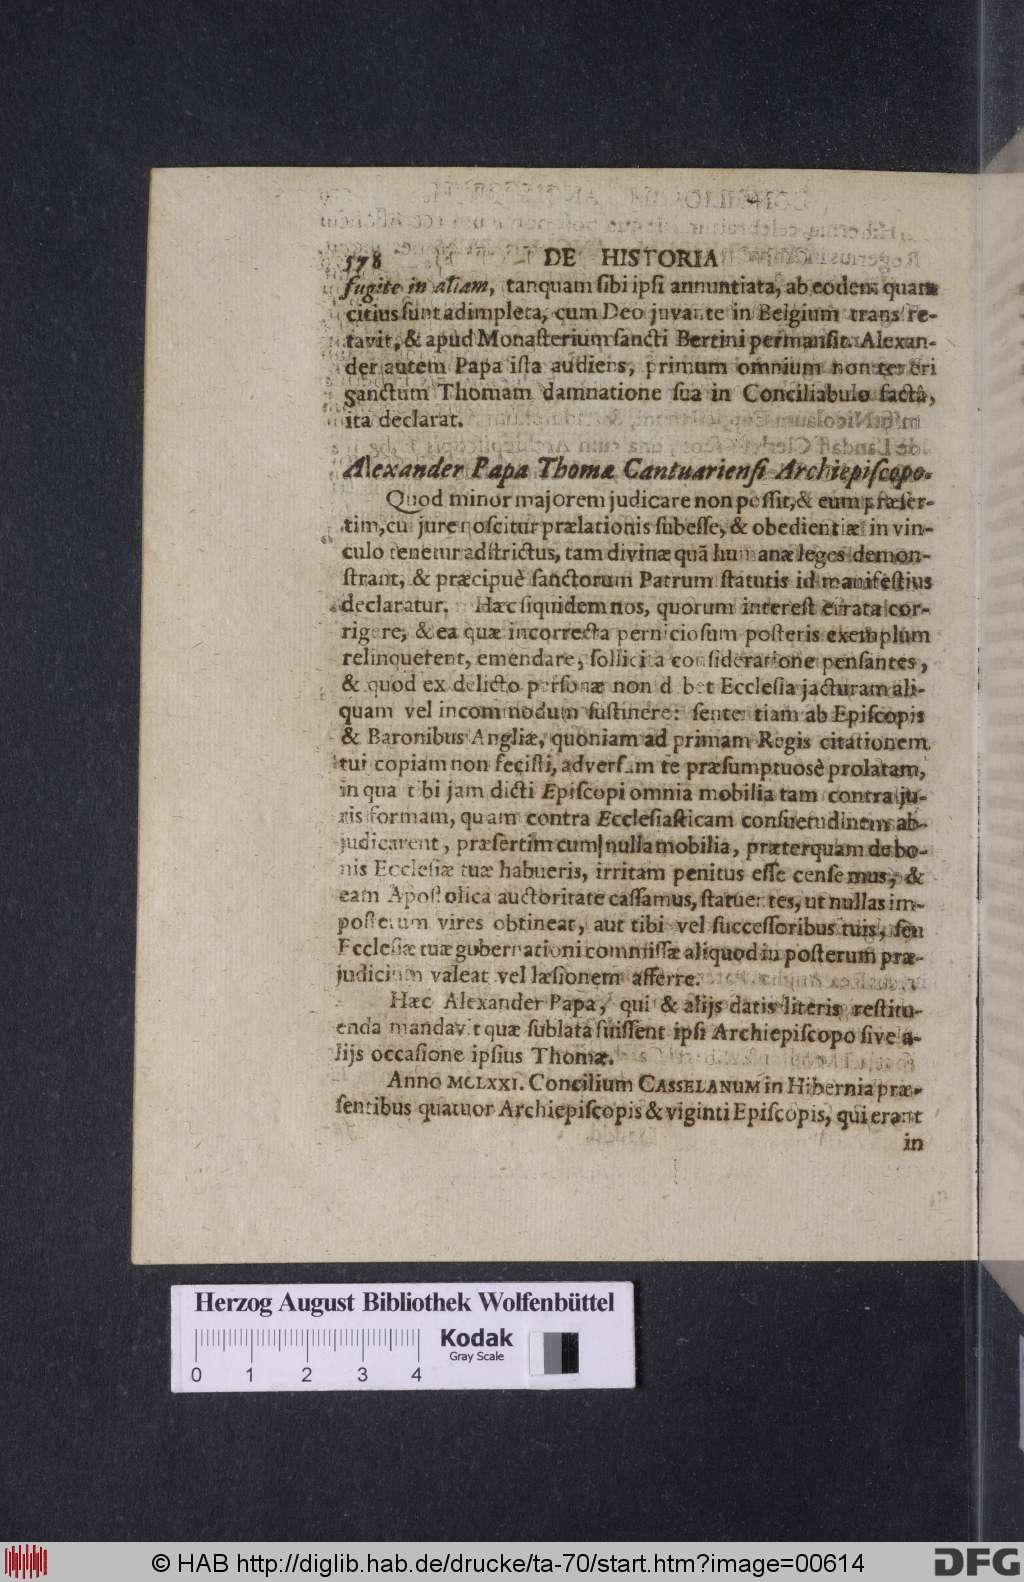 578 DE HISTORIA
fugite in aliam, tanquam sibi ipsi annuntiata, ab eodem quam
citius sunt adimpleta, cum Deo juvante in Belgium transfre-
tavit, & apud Monasterium sancti Bertini permansit. Alexan-
der autem Papa ista audiens, primum omnium non teneri
sanctum Thomam damnatione sua in Conciliabulo factâ,
ita declarat.
Alexander Papa Thomæ Cantuariensi Archiepiscopo.
Quod minor majorem judicare non possit, & eum præser-
tim, cui jure noscitur prælationis subesse, & obedientiæ in vin-
culo tenetur adstrictus, tam divinæ quã humanæ leges demon-
strant, & præcipuè sanctorum Patrum statutis id manifestius
declaratur. Hæc siquidem nos, quorum interest errata cor-
rigere, & ea quæ incorrecta perniciosum posteris exemplum
relinquerent, emendare, sollicita consideratione pensantes,
& quod ex delicto personæ non debet Ecclesia jacturam ali-
quam vel incommodum sustinere: sententiam ab Episcopis
& Baronibus Angliæ, quoniam ad primam Regis citationem
tui copiam non fecisti, adversum te præsumptuosè prolatam,
in qua tibi jam dicti Episcopi omnia mobilia tam contra ju-
ris formam, quam contra Ecclesiasticam consuetudinem ab-
judicarent, præsertim cum nulla mobilia, præterquam de bo-
nis Ecclesiæ tuæ habueris, irritam penitus esse censemus, &
eam Apostolica auctoritate cassamus, statuentes, ut nullas im-
posterum vires obtineat, aut tibi vel successoribus tuis, seu
Ecclesiæ tuæ gubernationi commissæ aliquod in posterum præ-
judicium valeat vel læsionem afferre.
Hæc Alexander Papa, qui & alijs datis literis restitu-
enda mandavit quæ sublata fuissent ipsi Archiepiscopo sive a-
lijs occasione ipsius Thomæ.
Anno MCLXXI. Concilium CASSELANUM in Hibernia præ-
sentibus quatuor Archiepiscopis & viginti Episcopis, qui erant
in
Herzog August Bibliothek Wolfenbüttel
Kodak
Gray Scale
0 1 2 3 4
© HAB http://diglib.hab.de/drucke/ta-70/start.htm?image=00614
DFG